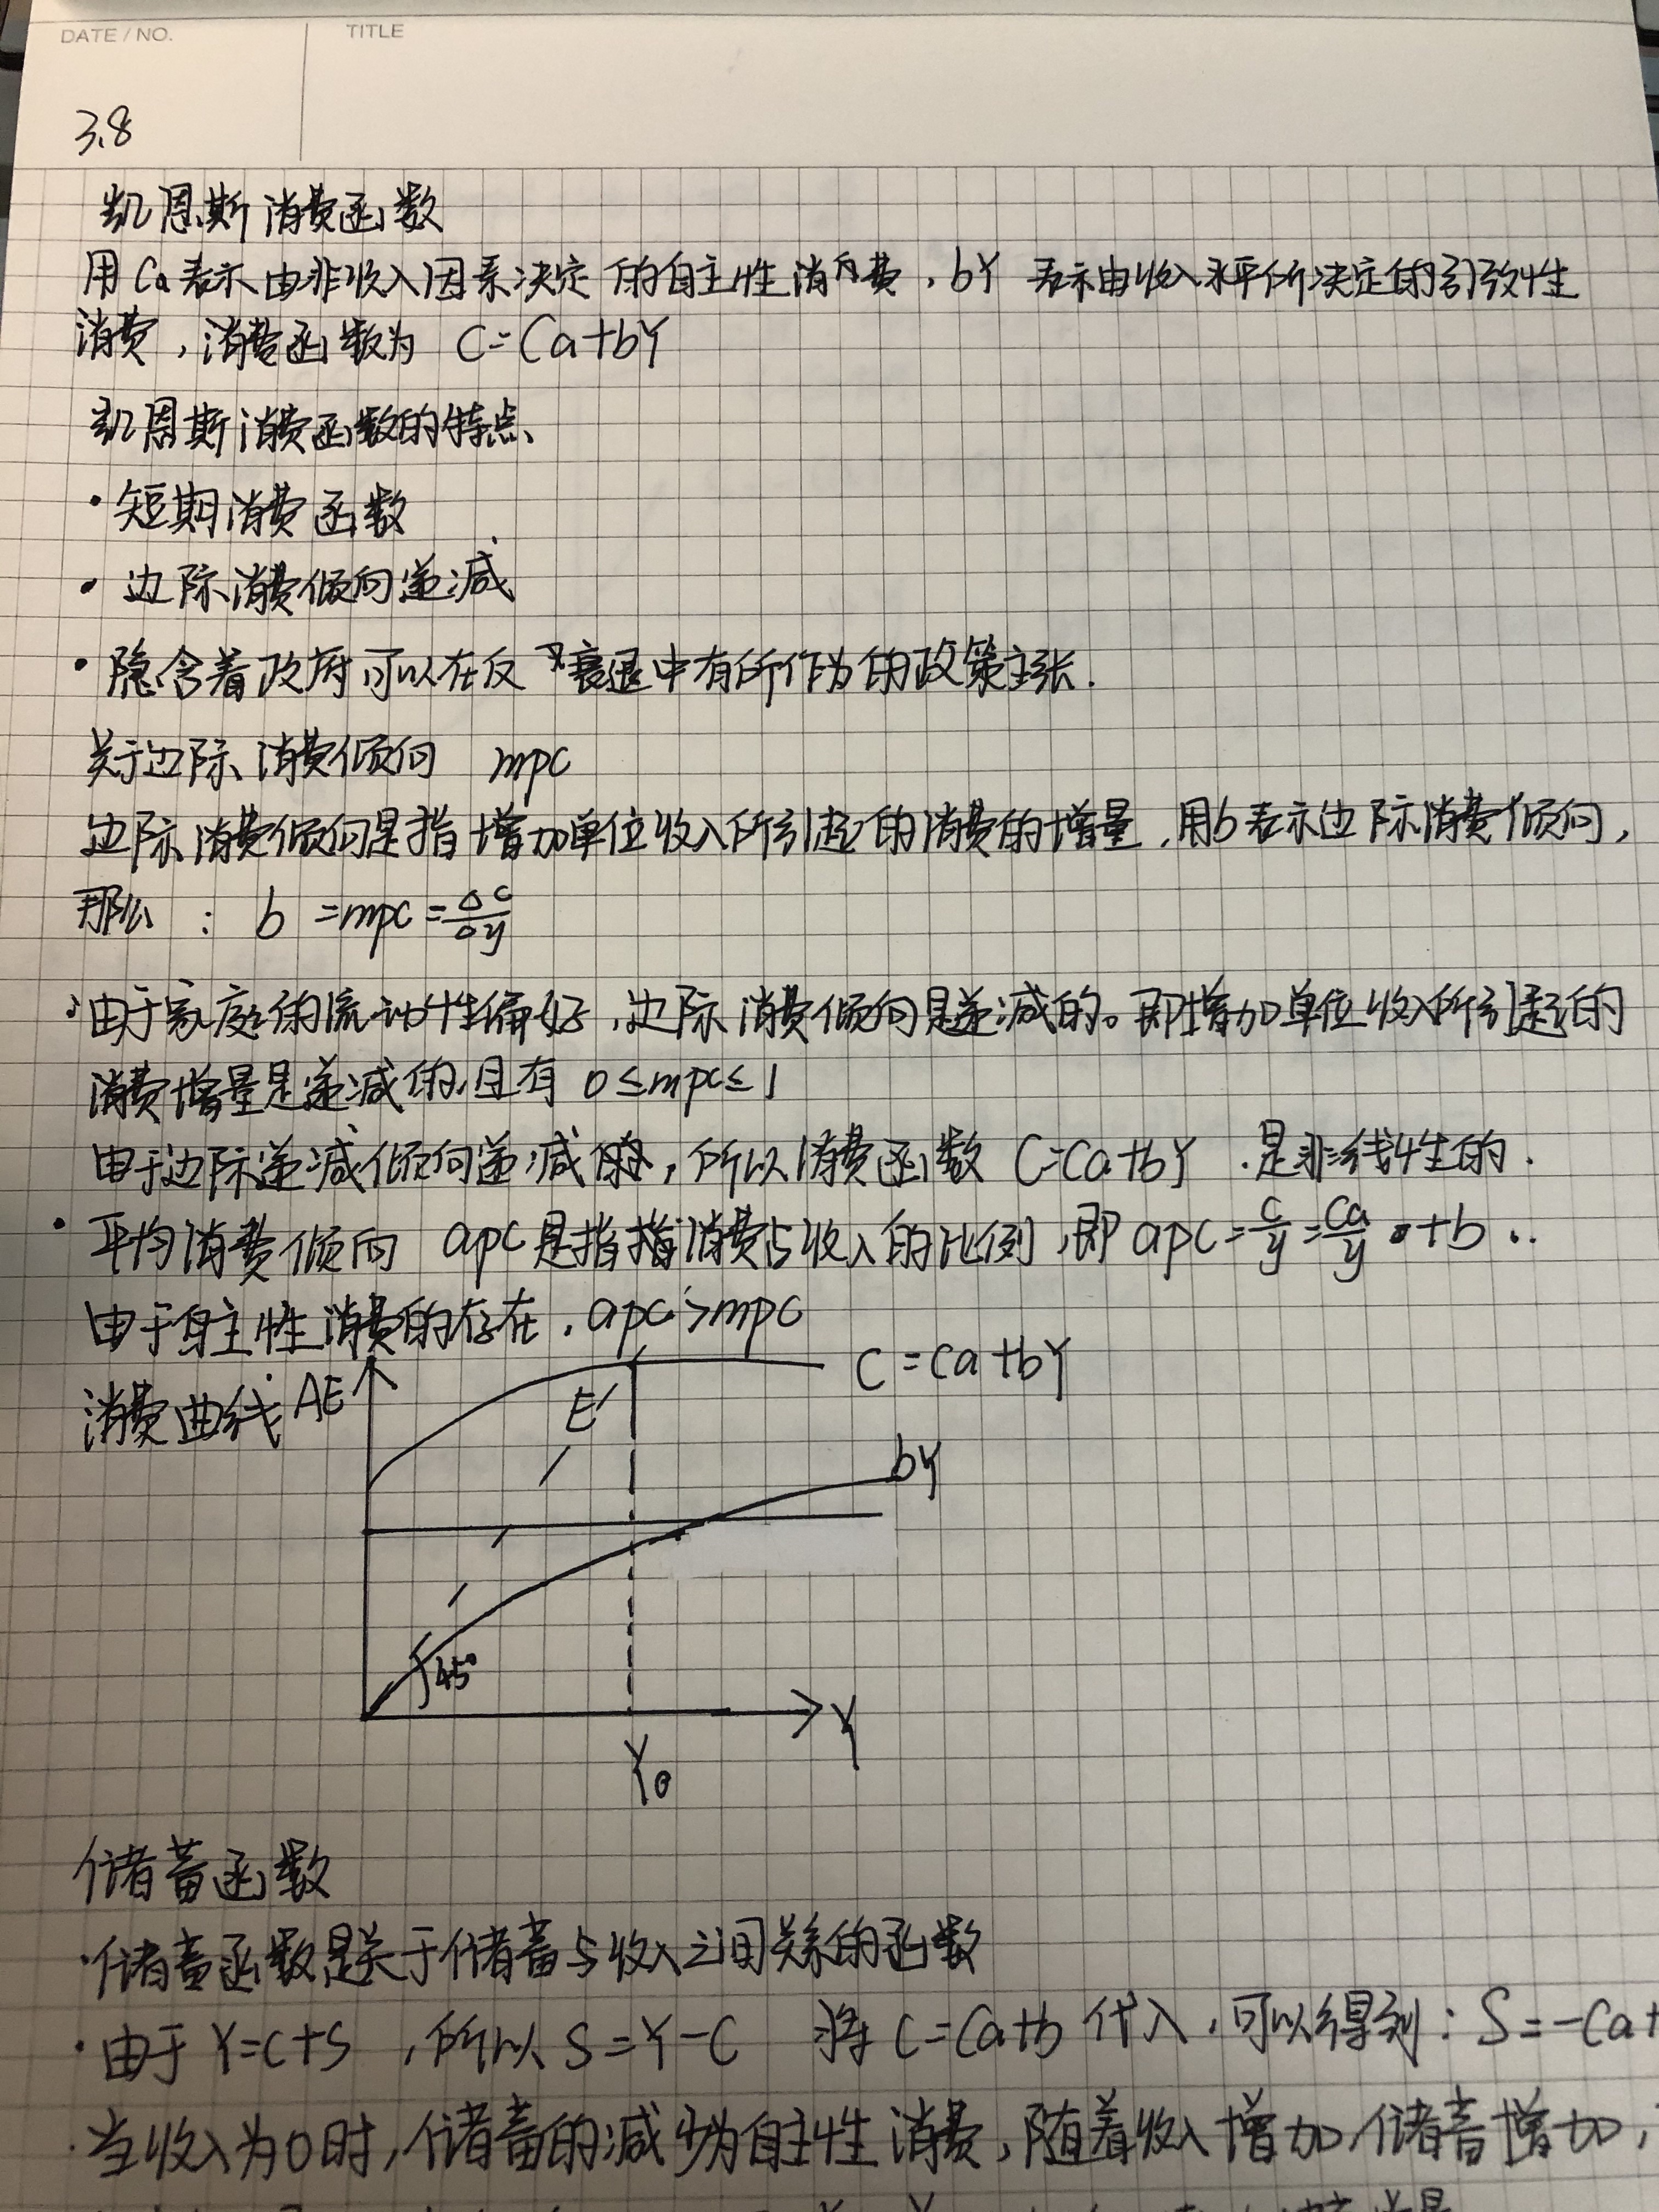 DATE / NO.
TITLE
3.8
凯恩斯消费函数
用Ca表示由非收入因素决定的自主性消费,bY表示由收入水平所决定的引致性
消费,消费函数为 C=Ca+bY
凯恩斯消费函数的特点
·短期消费函数
·边际消费倾向递减
·隐含着政府可以在反衰退中有所作为的政策主张.
关于边际消费倾向 mpc
边际消费倾向是指增加单位收入所引起的消费的增量,用b表示边际消费倾向,
那么: b=mpc=△c/△y
·由于家庭的流动性偏好,边际消费倾向是递减的。即增加单位收入所引起的
消费增量是递减的,且有 0≤mpc≤1
由于边际递减倾向递减的,所以消费函数 C=Ca+bY.是非线性的.
·平均消费倾向 apc是指指消费占收入的比例,即apc=c/y=Ca/y+b..
由于自主性消费的存在,apc>mpc
消费曲线
AE
C=Ca+bY
E'
bY
45°
Y
Y0
储蓄函数
·储蓄函数是关于储蓄与收入之间关系的函数
·由于Y=C+S,所以S=Y-C 将C=Ca+b代入,可以得到:S=-Ca+
·当收入为0时,储蓄的减少为自主性消费,随着收入增加,储蓄增加,